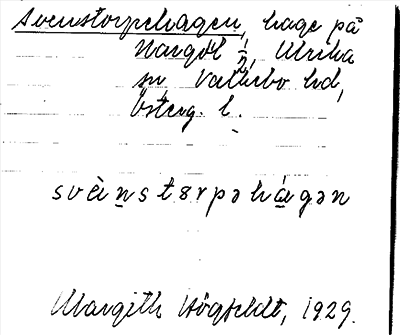 Svenstorpehagen, hage på
Norrgöl 1/2, Ulrika
sn Valkebo hd,
Österg. l.
svèi̠nstɤrpəhá̠gən
Margith Högfeldt, 1929.